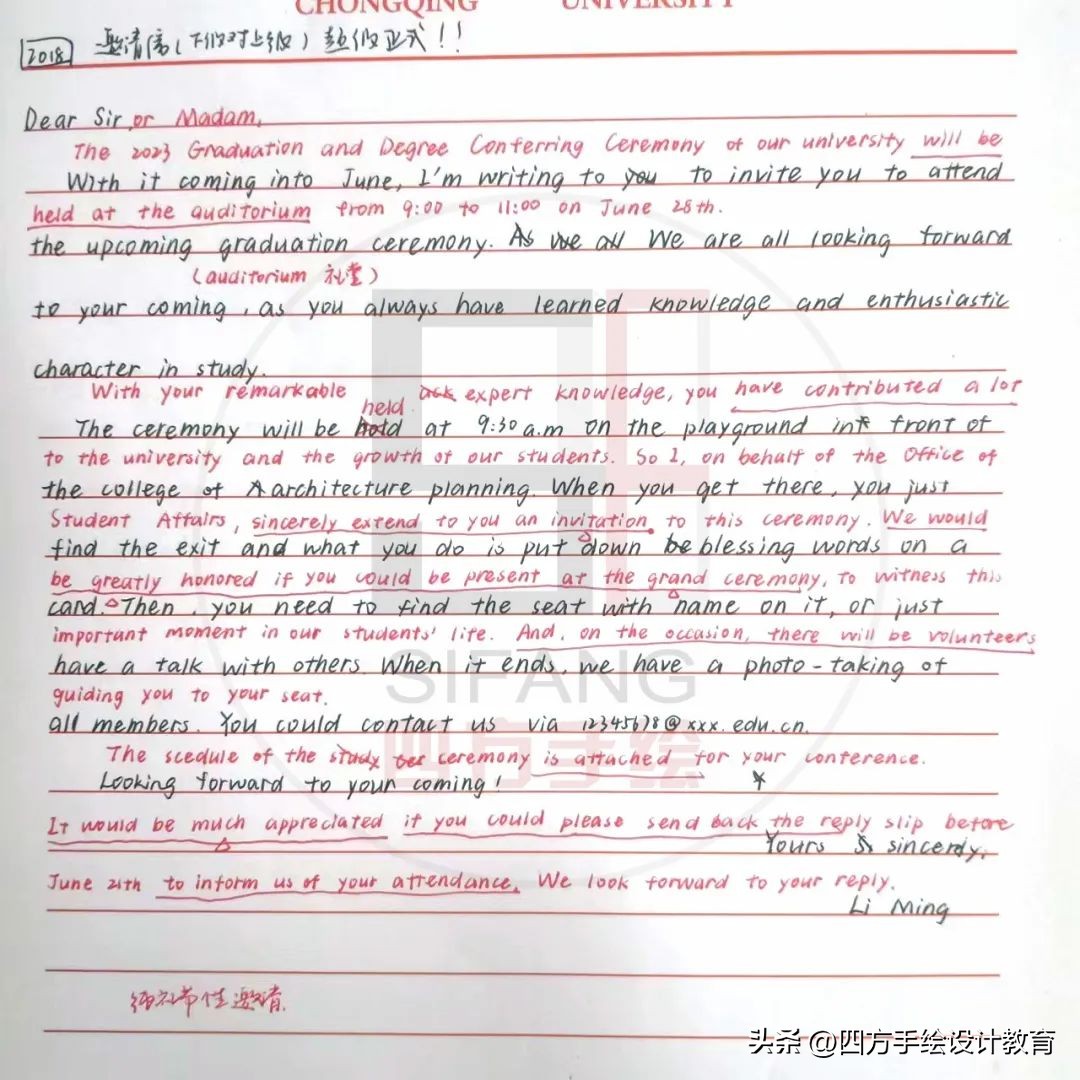 CHONGQING UNIVERSITY
2018 邀请信(下级对上级) 越级正式!!
Dear Sir or Madam,
The 2023 Graduation and Degree Conferring Ceremony of our university will be
With it coming into June, I'm writing to you to invite you to attend
held at the auditorium from 9:00 to 11:00 on June 28th.
the upcoming graduation ceremony. As we all We are all looking forward
(auditorium 礼堂)
to your coming, as you always have learned knowledge and enthusiastic
character in study.
With your remarkable expert knowledge, you have contributed a lot
held
The ceremony will be hold at 9:30 a.m on the playground int front of
to the university and the growth of our students. So I, on behalf of the Office of
the college of A architecture planning. When you get there, you just
Student Affairs, sincerely extend to you an invitation to this ceremony. We would
find the exit and what you do is put down be blessing words on a
be greatly honored if you could be present at the grand ceremony, to witness this
card. Then, you need to find the seat with name on it, or just
important moment in our students' life. And, on the occasion, there will be volunteers
have a talk with others. When it ends, we have a photo-taking of
guiding you to your seat.
all members. You could contact us via 12345678@xxx.edu.cn.
The scedule of the study ceremony is attached for your conference.
Looking forward to your coming!
It would be much appreciated if you could please send back the reply slip before
Yours S sincerely,
June 21th to inform us of your attendance. We look forward to your reply.
Li Ming
邀请
SIFANG
四方手绘
头条 @四方手绘设计教育